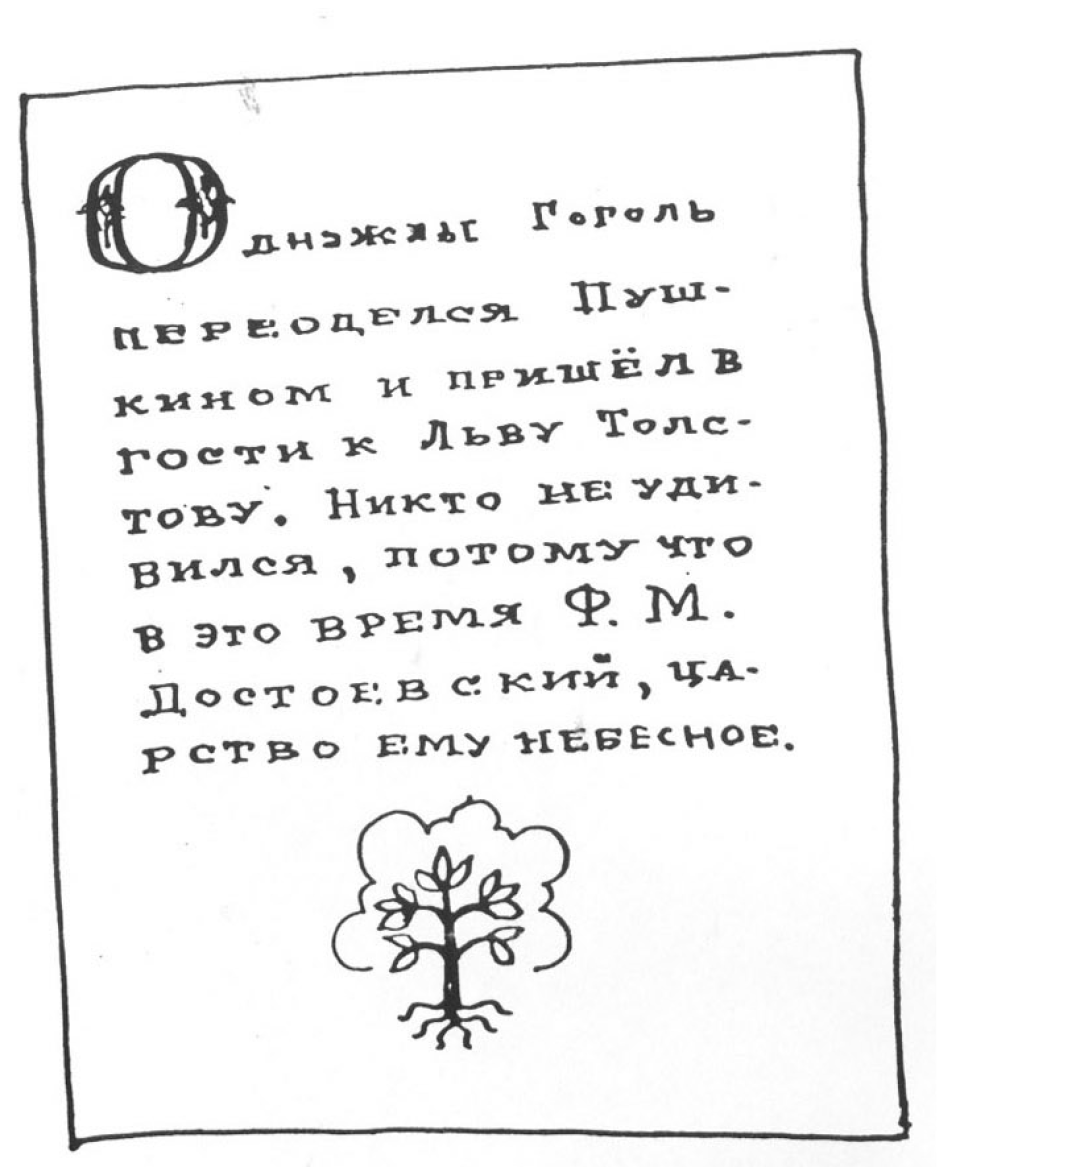 Однажды Гоголь
переоделся Пуш-
кином и пришёл в
гости к Льву Толс-
тову. Никто не уди-
вился, потому что
в это время Ф. М.
Достоевский, ца-
рство ему небесное.